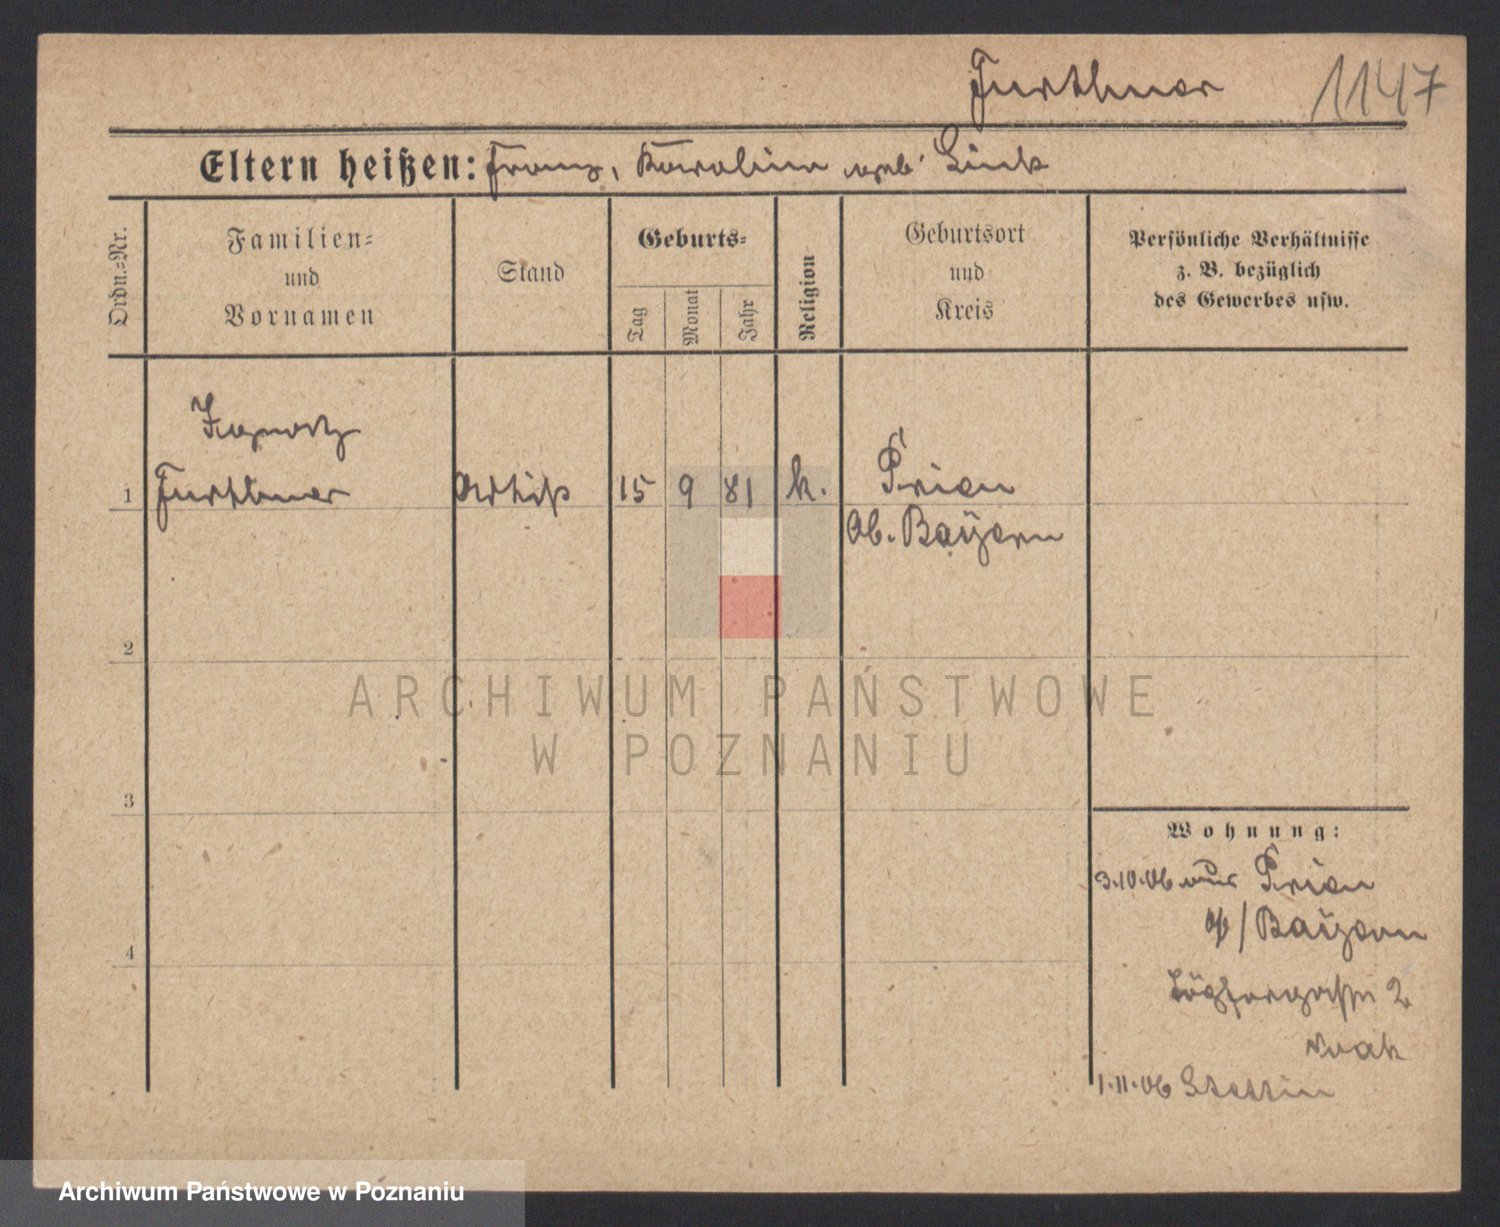 Furthner 1147
Eltern heißen: Franz, Karolina geb. Link
Ordn.=Nr.
Familien=
und
Vornamen
Stand
Geburts=
Tag
Monat
Jahr
Religion
Geburtsort
und
Kreis
Persönliche Verhältnisse
z. B. bezüglich
des Gewerbes usw.
Ignatz
1 Furthner Artist 15 9 81 k. Prien
Ob. Bayern
2
3
4
Wohnung:
3.10.06 aus Prien
o/ Bayern
2
1.11.06 Stettin
ARCHIWUM PAŃSTWOWE
W POZNANIU
Archiwum Państwowe w Poznaniu